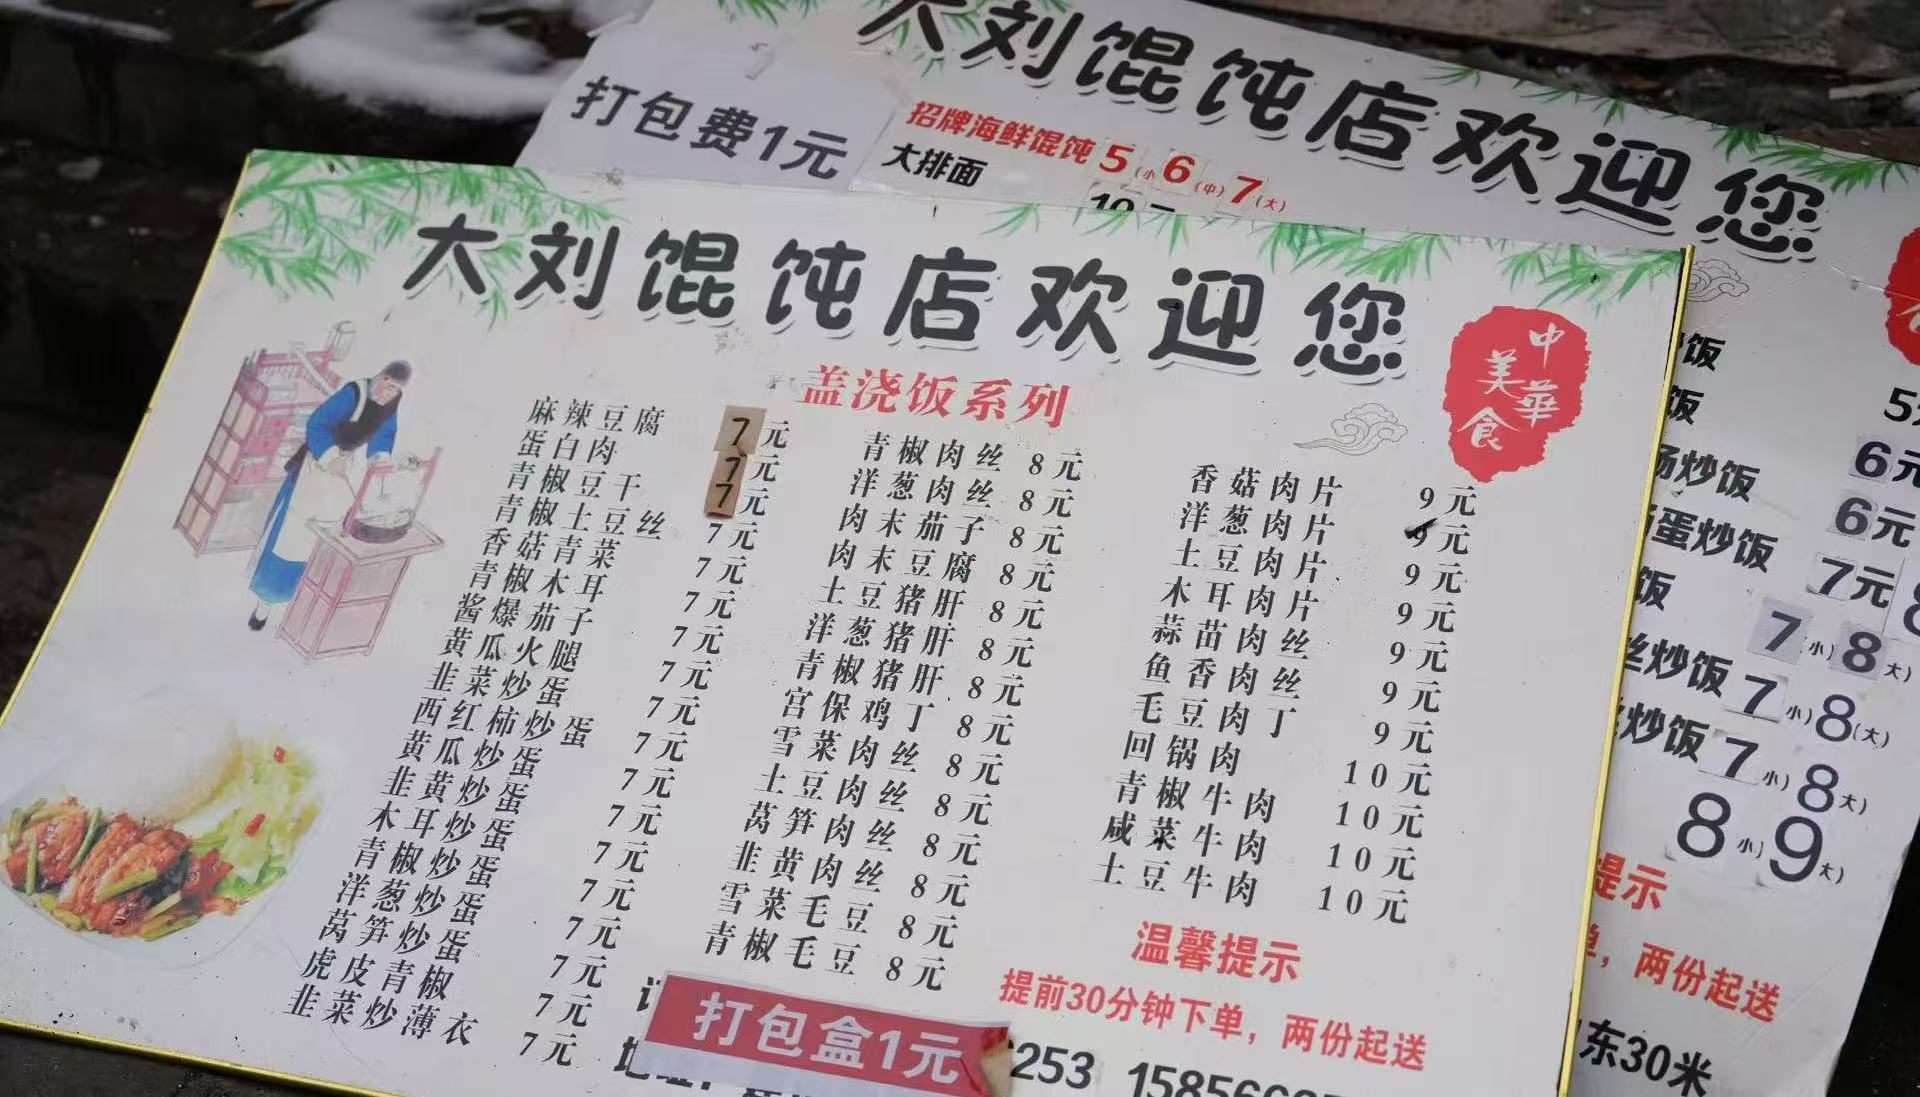 大刘馄饨店欢迎您
打包费1元
招牌海鲜馄饨 5(小) 6(中) 7(大)
大排面
大刘馄饨店欢迎您
中华
美食
盖浇饭系列
麻辣豆腐 7元
蛋白肉 7元
青椒豆干 7元
青椒土豆丝 7元
香菇青菜 7元
青椒木耳 7元
酱爆茄子 7元
黄瓜火腿 7元
韭菜炒蛋 7元
西红柿炒蛋 7元
黄瓜炒蛋 7元
韭黄炒蛋 7元
木耳炒蛋 7元
青椒炒蛋 7元
洋葱炒蛋 7元
莴笋炒蛋 7元
虎皮青椒 7元
韭菜炒薄衣 7元
青椒肉丝 8元
洋葱肉丝 8元
肉末茄子 8元
肉末豆腐 8元
土豆猪肝 8元
洋葱猪肝 8元
青椒猪肝 8元
宫保鸡丁 8元
雪菜肉丝 8元
土豆肉丝 8元
莴笋肉丝 8元
韭黄肉丝 8元
雪菜毛豆 8元
青椒毛豆 8元
香菇肉片 9元
洋葱肉片 9元
土豆肉片 9元
木耳肉片 9元
蒜苗肉丝 9元
鱼香肉丝 9元
毛豆肉丁 9元
回锅肉 10元
青椒牛肉 10元
咸菜牛肉 10元
土豆牛肉 10元
温馨提示
提前30分钟下单，两份起送
打包盒1元
253 158566
饭
饭 5
炒饭 6元
蛋炒饭 6元
饭 7元 8
丝炒饭 7(小) 8(大)
炒饭 7(小) 8(大)
7(小) 8(大)
8(小) 9(大)
提示
单，两份起送
东30米